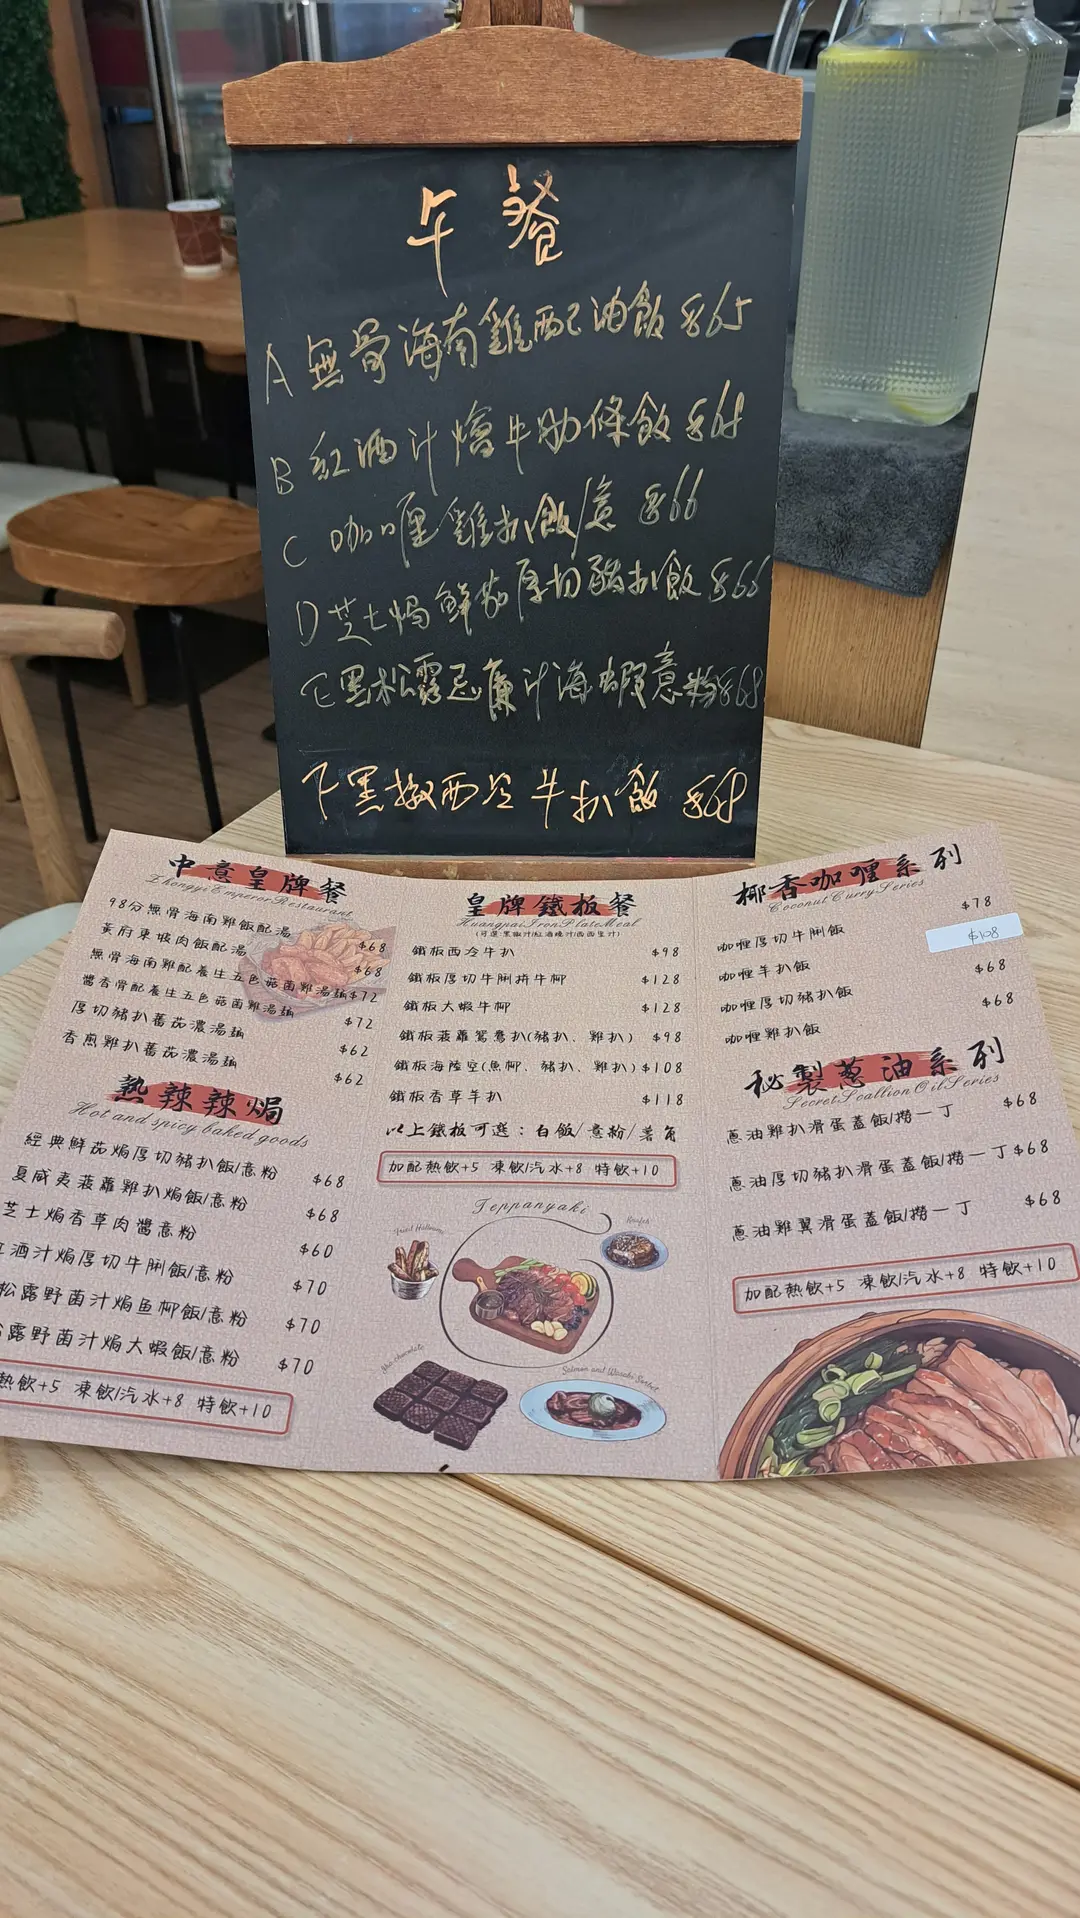 午餐
A 無骨海南雞配油飯 $65
B 紅酒汁燴牛肋條飯 $68
C 咖喱雞扒飯/意 $66
D 芝士焗鮮茄厚切豬扒飯 $66
E 黑松露忌廉汁海蝦意粉 $68
F 黑椒西冷牛扒飯 $68
中意皇牌餐
Zhongyi Emperor Restaurant
98分無骨海南雞飯配湯 $68
黃府東坡肉飯配湯 $68
無骨海南雞配養生五色菇菌雞湯麵 $72
醬香骨配養生五色菇菌雞湯麵 $72
厚切豬扒蕃茄濃湯麵 $62
香煎雞扒蕃茄濃湯麵 $62
熱辣辣焗
Hot and spicy baked goods
經典鮮茄焗厚切豬扒飯/意粉 $68
夏威夷菠蘿雞扒焗飯/意粉 $68
芝士焗香草肉醬意粉 $60
酒汁焗厚切牛脷飯/意粉 $70
松露野菌汁焗鱼柳飯/意粉 $70
露野菌汁焗大蝦飯/意粉 $70
熱飲+5 凍飲/汽水+8 特飲+10
皇牌鐵板餐
Huangpai Iron Plate Meal
(可選:黑椒汁/紅酒燒汁/西西里汁)
鐵板西冷牛扒 $98
鐵板厚切牛脷拼牛柳 $128
鐵板大蝦牛柳 $128
鐵板菠蘿鴛鴦扒(豬扒、雞扒) $98
鐵板海陸空(魚柳、豬扒、雞扒) $108
鐵板香草羊扒 $118
以上鐵板可選：白飯/意粉/薯角
加配熱飲+5 凍飲/汽水+8 特飲+10
Teppanyaki
Salmon and Wasabi Sorbet
椰香咖喱系列
Coconut Curry Series
咖喱厚切牛脷飯 $78
咖喱羊扒飯 $108
咖喱厚切豬扒飯 $68
咖喱雞扒飯 $68
秘製蔥油系列
Secret Scallion Oil Series
蔥油雞扒滑蛋蓋飯/撈一丁 $68
蔥油厚切豬扒滑蛋蓋飯/撈一丁 $68
蔥油雞翼滑蛋蓋飯/撈一丁 $68
加配熱飲+5 凍飲/汽水+8 特飲+10